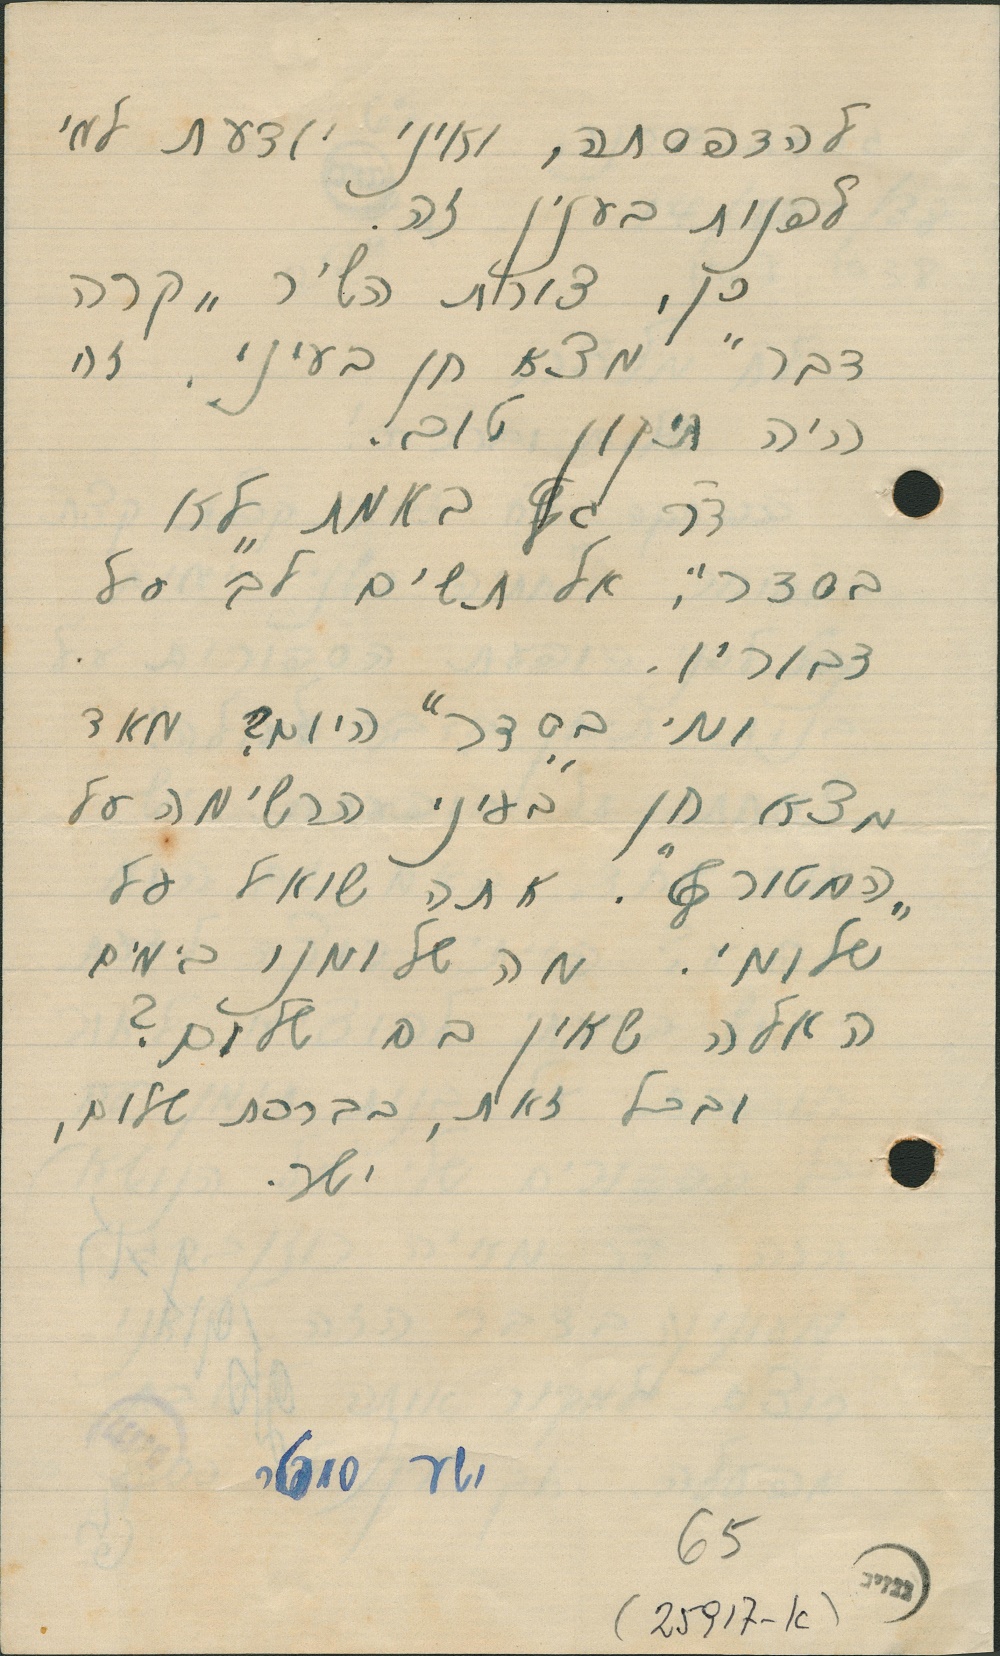 להדפסתה, ואיני יודעת למי
לפנות בענין זה.
כן, צורת השיר „קרה
דבר" מצא חן בעיני. זה
היה תיקון טוב.
ד"ר באמת „לא
בסדר", אל תשים לב על
דבוריו.
ומי „בסדר" היום? מאד
מצא חן בעיני הרשימה על
„המטורף". אתה שואל על
שלומי. מה שלומנו בימים
האלה שאין בם שלום?
ובכל זאת, בברכת שלום,
ישר.
ישר
65
(25917-א)
גנזים